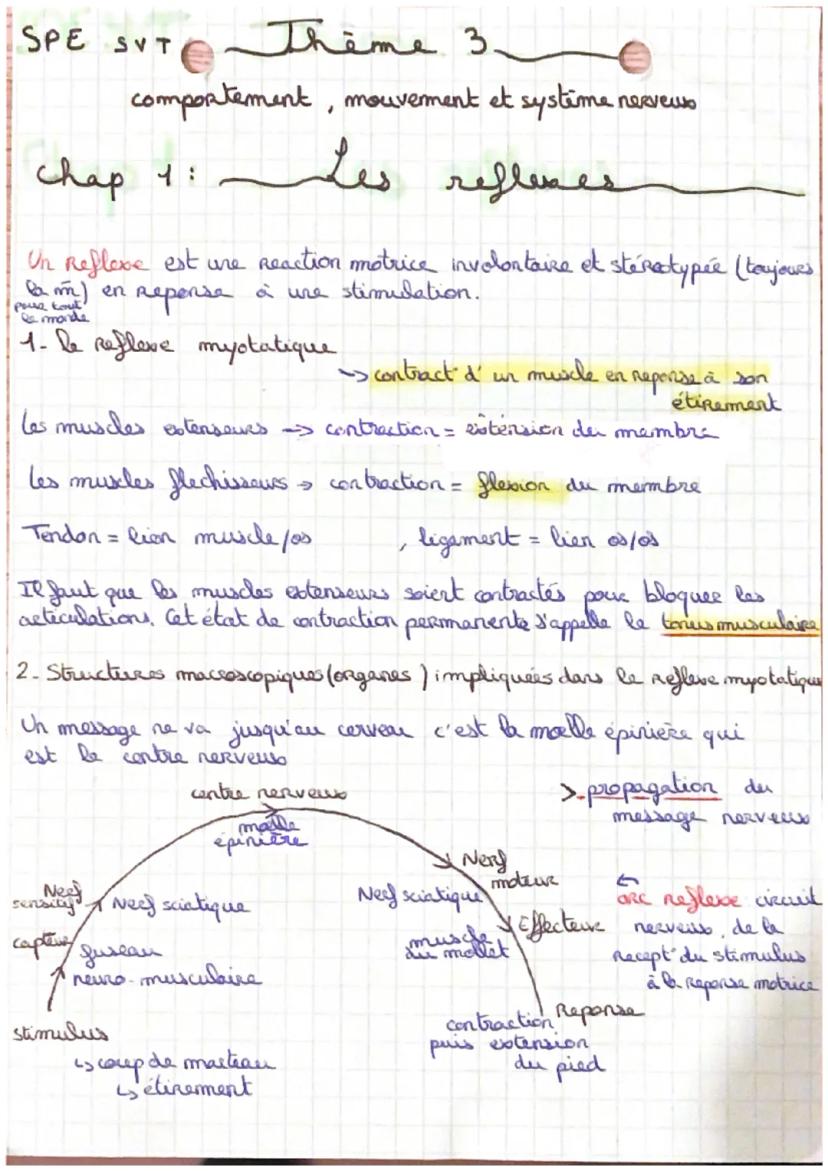 SPE SVT Thème 3
comportement, mouvement et système nerveux
Chap 1 : Les reflexes
Un Reflexe est une Reaction motrice involontaire et stéréotypée (toujours
la m̄) en Reponse à une stimulation.
pour tout
le monde
1- Le Reflexe myotatique
→ contract° d' un muscle en reponse à son
étirement
Les muscles extenseurs → contraction = extension du membre
Les muscles flechisseurs → contraction = flexion du membre
Tendon = lien muscle/os , ligament = lien os/os
Il faut que les muscles extenseurs soient contractés pour bloquer les
articulations. Cet état de contraction permanente s'appelle le tonus musculaire
2- Structures macroscopiques (organes) impliquées dans le reflexe myotatique
Un message ne va jusqu'au cerveau c'est la moelle épinière qui
est le centre nerveux
centre nerveux
moelle
épinière
> propagation du
message nerveux
Nerf
sensitif
Nerf sciatique
Nerf sciatique
Nerf
moteur
capteur
fuseau
neuro-musculaire
muscle
du mollet
Effecteur
← arc reflexe circuit
nerveux, de la
recept° du stimulus
à la reponse motrice
stimulus
↳ coup de marteau
↳ étirement
Reponse
contraction
puis extension
du pied